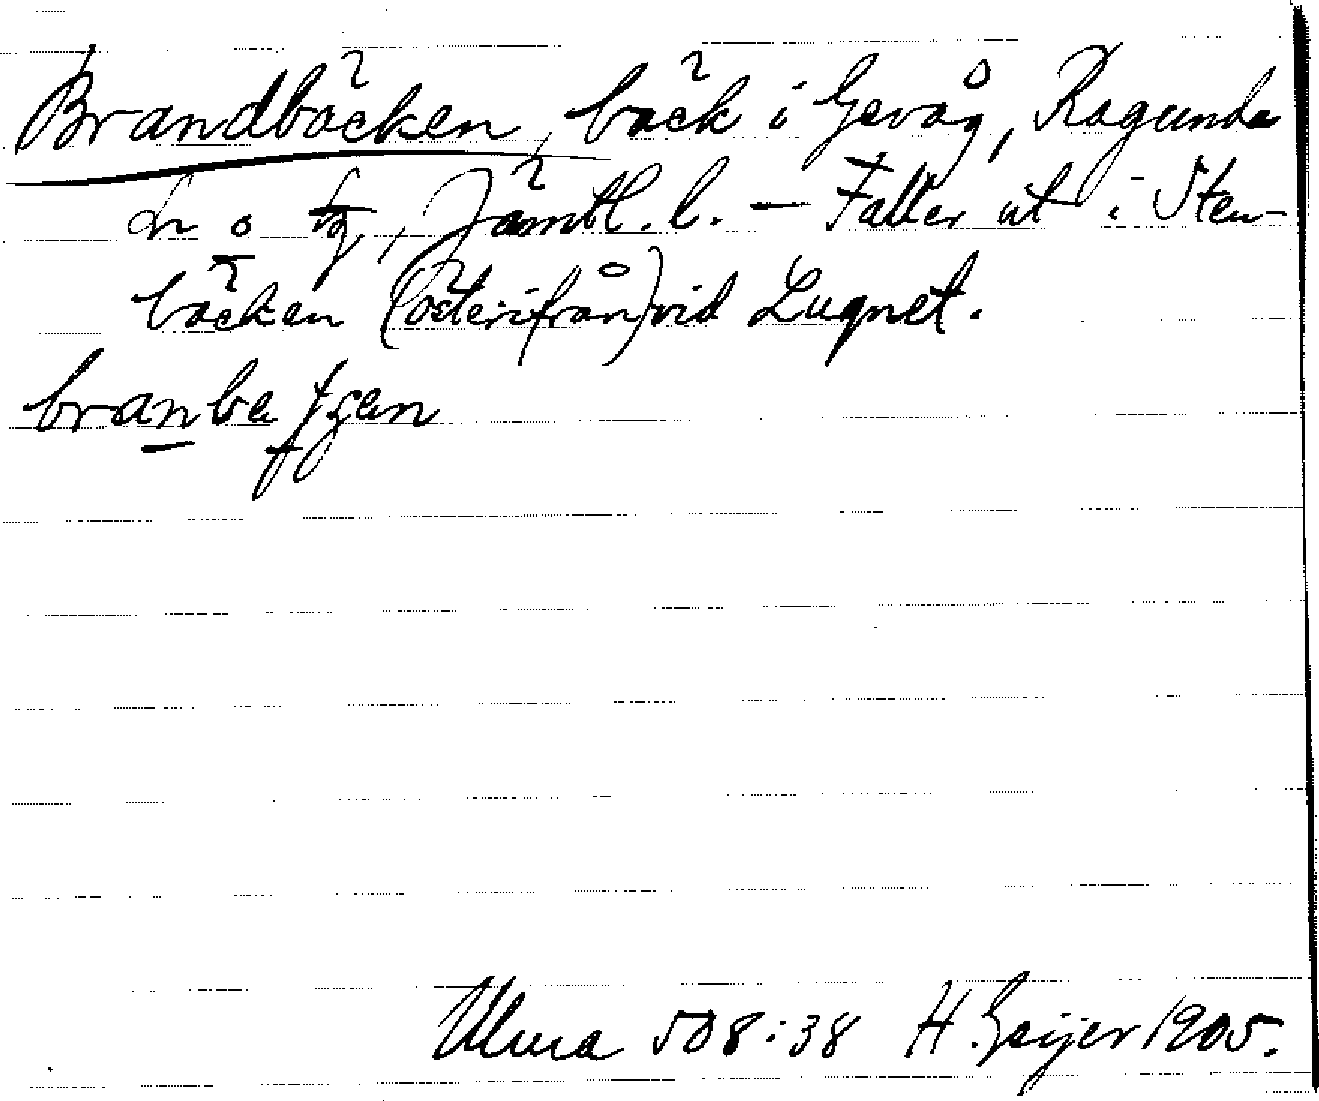 Brandbäcken, bäck i Gevåg, Ragunda
sn o tg, Jämtl. l. — Faller ut i Sten-
bäcken (österifrån) vid Lugnet.
Ulma 508:38 H. Geijer 1905.